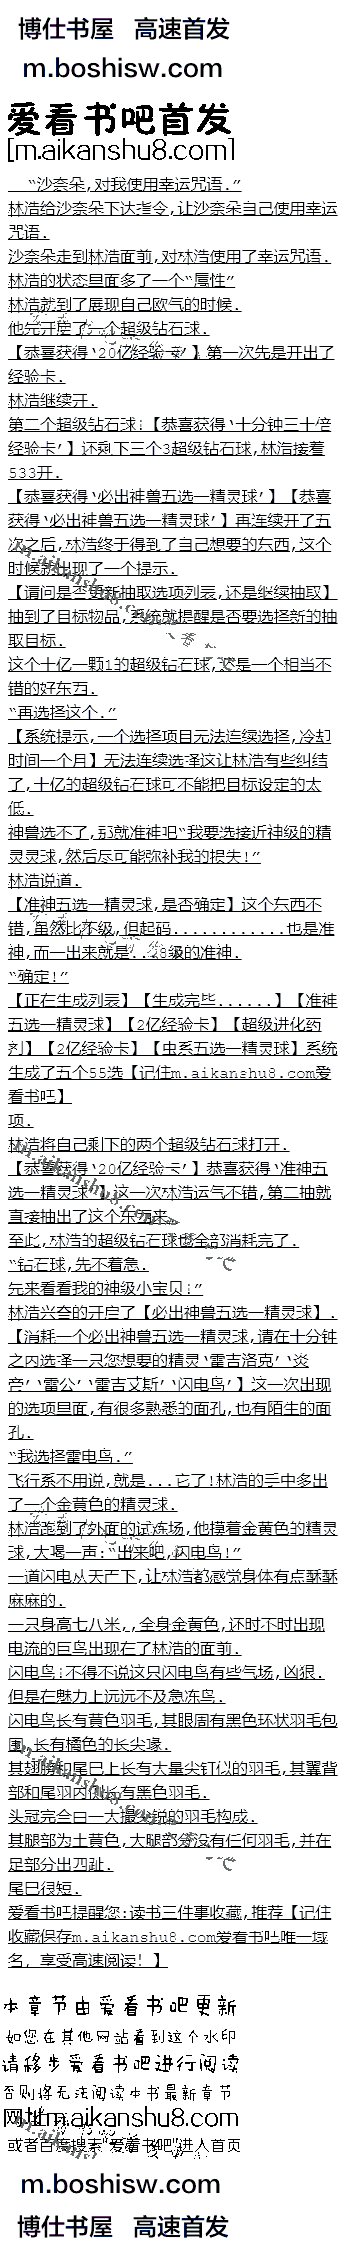 博仕书屋 高速首发
m.boshisw.com
爱看书吧首发
[m.aikanshu8.com]
“沙奈朵,对我使用幸运咒语.”
林浩给沙奈朵下达指令,让沙奈朵自己使用幸运
咒语.
沙奈朵走到林浩面前,对林浩使用了幸运咒语.
林浩的状态里面多了一个“属性”
林浩就到了展现自己欧气的时候.
他先开启了一个超级钻石球.
【恭喜获得‘20亿经验卡’】第一次先是开出了
经验卡.
林浩继续开.
第二个超级钻石球:【恭喜获得‘十分钟三十倍
经验卡’】还剩下三个3超级钻石球,林浩接着
533开.
【恭喜获得‘必出神兽五选一精灵球’】【恭喜
获得‘必出神兽五选一精灵球’】再连续开了五
次之后,林浩终于得到了自己想要的东西,这个
时候就出现了一个提示.
【请问是否更新抽取选项列表,还是继续抽取】
抽到了目标物品,系统就提醒是否要选择新的抽
取目标.
这个十亿一颗1的超级钻石球,还是一个相当不
错的好东西.
“再选择这个.”
【系统提示,一个选择项目无法连续选择,冷却
时间一个月】无法连续选择这让林浩有些纠结
了,十亿的超级钻石球可不能把目标设定的太
低.
神兽选不了,那就准神吧“我要选接近神级的精
灵灵球,然后尽可能弥补我的损失!”
林浩说道.
【准神五选一精灵球,是否确定】这个东西不
错,虽然比不级,但起码............也是准
神,而一出来就是...28级的准神.
“确定!”
【正在生成列表】【生成完毕......】【准神
五选一精灵球】【2亿经验卡】【超级进化药
剂】【2亿经验卡】【虫系五选一精灵球】系统
生成了五个55选【记住m.aikanshu8.com爱
看书吧】
项.
林浩将自己剩下的两个超级钻石球打开.
【恭喜获得‘20亿经验卡’】恭喜获得‘准神五
选一精灵球’】这一次林浩运气不错,第二抽就
直接抽出了这个东西来.
至此,林浩的超级钻石球也全部消耗完了.
“钻石球,先不着急.
先来看看我的神级小宝贝!”
林浩兴奋的开启了【必出神兽五选一精灵球】.
【消耗一个必出神兽五选一精灵球,请在十分钟
之内选择一只您想要的精灵‘雷吉洛克’‘炎
帝’‘雷公’‘雷吉艾斯’‘闪电鸟’】这一次出现
的选项里面,有很多熟悉的面孔,也有陌生的面
孔.
“我选择雷电鸟.”
飞行系不用说,就是...它了!林浩的手中多出
了一个金黄色的精灵球.
林浩跑到了外面的试炼场,他摸着金黄色的精灵
球,大喝一声:“出来吧,闪电鸟!”
一道闪电从天而下,让林浩都感觉身体有点酥酥
麻麻的.
一只身高七八米,,全身金黄色,还时不时出现
电流的巨鸟出现在了林浩的面前.
闪电鸟:不得不说这只闪电鸟有些气场,凶狠.
但是在魅力上远远不及急冻鸟.
闪电鸟长有黄色羽毛,其眼周有黑色环状羽毛包
围,长有橘色的长尖喙.
其翅膀和尾巴上长有大量尖钉似的羽毛,其翼背
部和尾羽内侧长有黑色羽毛.
头冠完全由一大撮尖锐的羽毛构成.
其腿部为土黄色,大腿部分没有任何羽毛,并在
足部分出四趾.
尾巴很短.
爱看书吧提醒您:读书三件事收藏,推荐【记住
收藏保存m.aikanshu8.com爱看书吧唯一域
名, 享受高速阅读! 】
本章节由爱看书吧更新
如您在其他网站看到这个水印
请移步爱看书吧进行阅读
否则将无法阅读本书最新章节
网址m.aikanshu8.com
或者百度搜索“爱看书吧”进入首页
m.boshisw.com
博仕书屋 高速首发